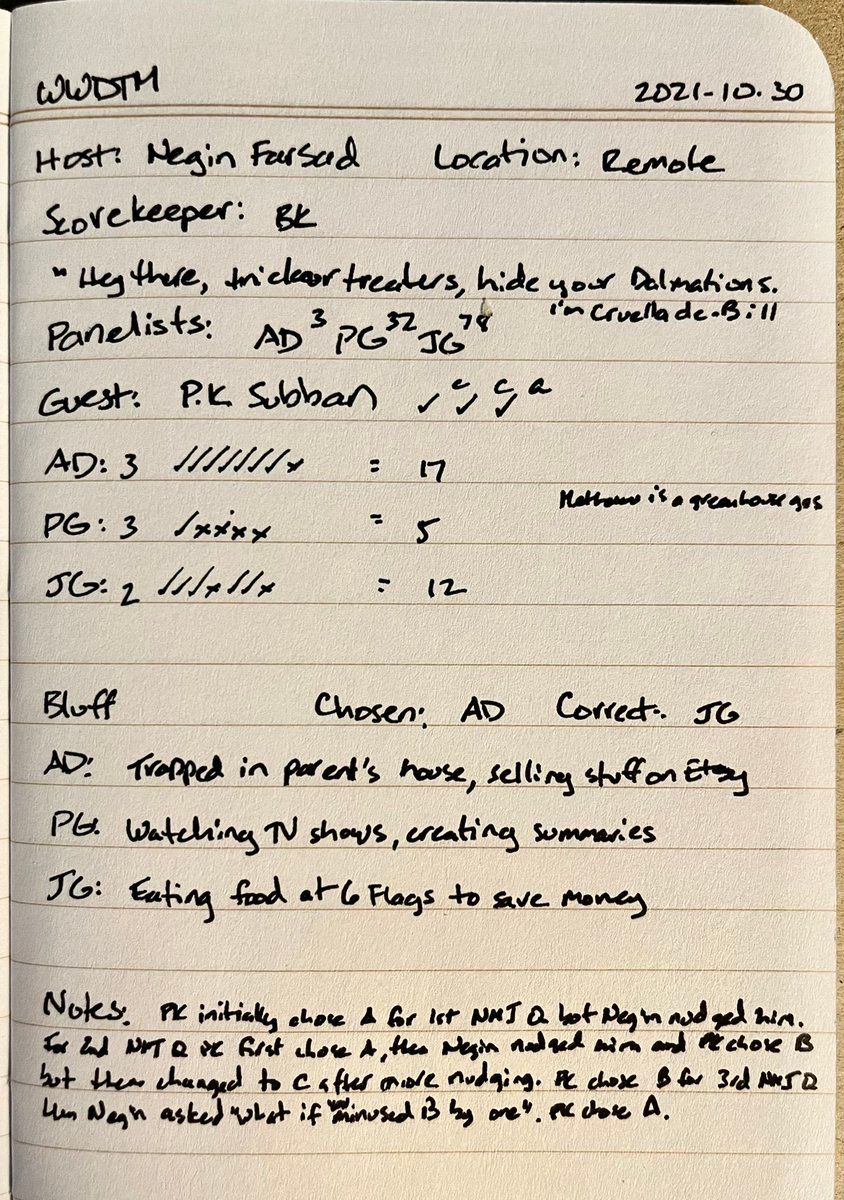 WWDTM 2021-10-30
Host: Negin Farsad Location: Remote
Scorekeeper: BK
"Hey there, trick or treaters, hide your Dalmations.
I'm Cruella de-Bill
Panelists: AD 3 PG 32 JG 78
Guest: P.K. Subban ✓ c ✓ c ✓ a
AD: 3 ///////x = 17
Methane is a greenhouse gas
PG: 3 /xxxx = 5
JG: 2 ///x//x = 12
Bluff Chosen: AD Correct: JG
AD: Trapped in parent's house, selling stuff on Etsy
PG: Watching TV shows, creating summaries
JG: Eating food at 6 Flags to save money
Notes: PK initially chose A for 1st NMJ Q but Negin nudged him.
For 2nd NMJ Q PK first chose A, then Negin nudged him and PK chose B
but then changed to C after more nudging. PK chose B for 3rd NMJ Q
then Negin asked "what if you minused B by one". PK chose A.